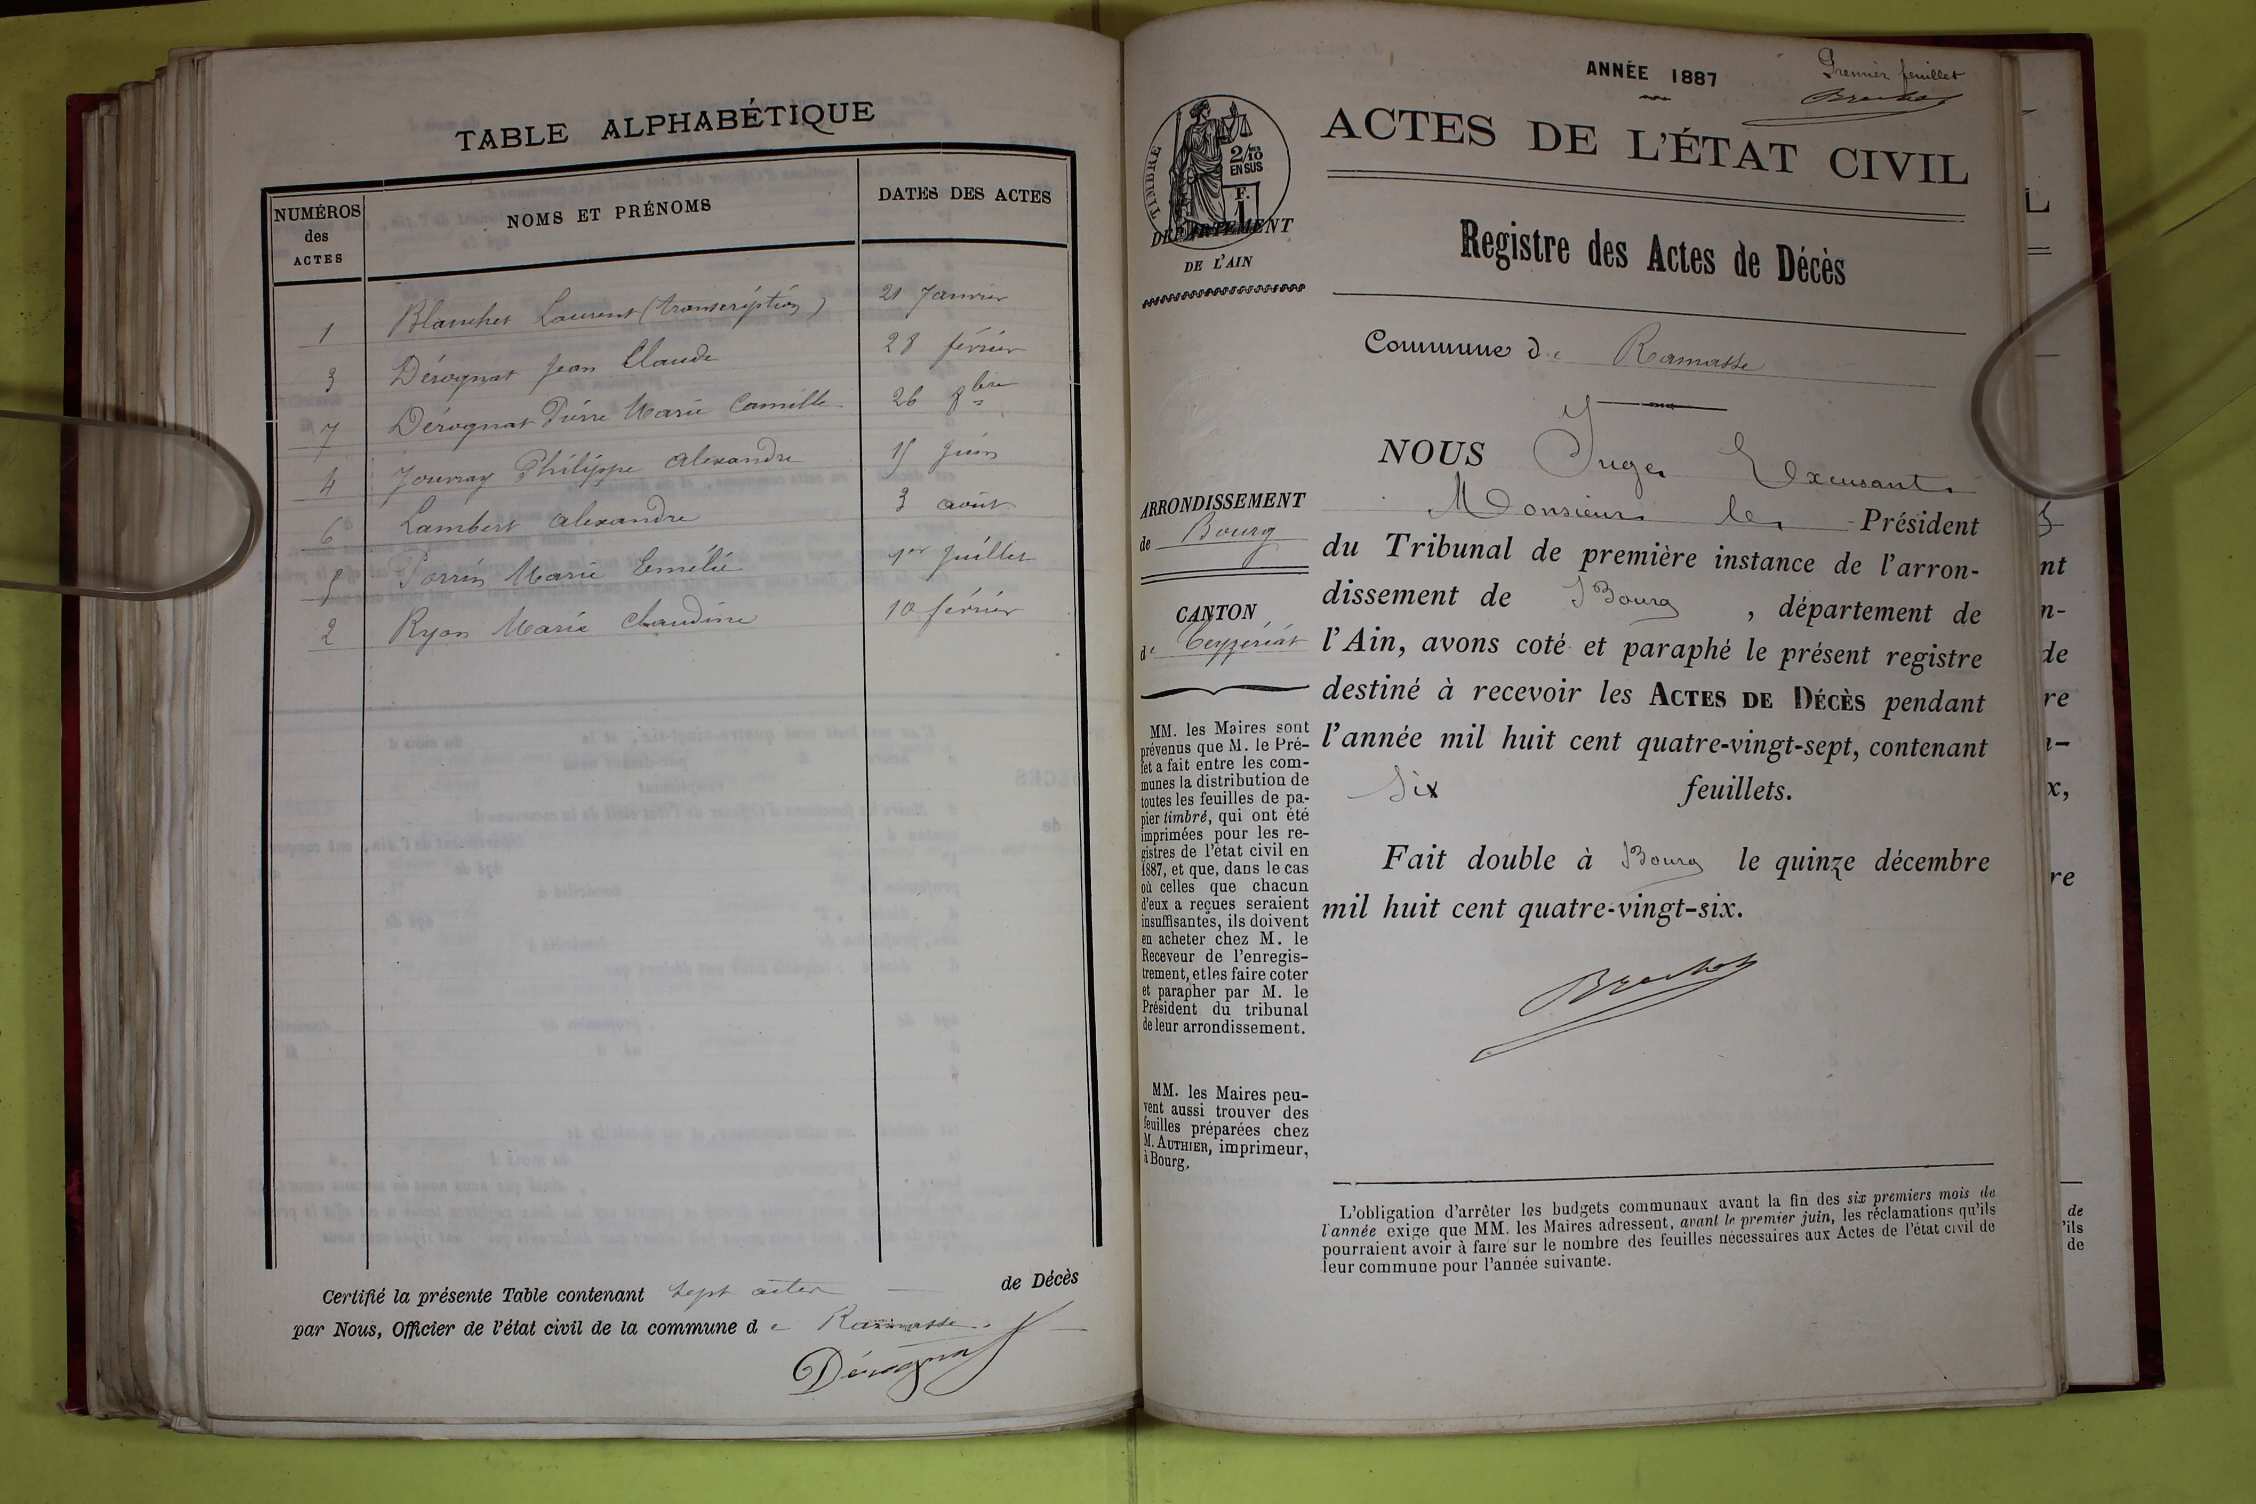 TABLE ALPHABÉTIQUE
NUMÉROS des ACTES
NOMS ET PRÉNOMS
DATES DES ACTES
1 Blanchet Laurent (transcription) 21 Janvier
3 Dérognat Jean Claude 28 février
7 Dérognat Pierre Marie Camille 26 8bre
4 Jouvray Philippe Alexandre 15 Juin
6 Lambert Alexandre 3 août
5 Perrin Marie Emélie 1er Juillet
2 Ryon Marie Claudine 10 février
Certifié la présente Table contenant sept actes de Décès
par Nous, Officier de l'état civil de la commune de Ramasse.
Dérognat
ANNÉE 1887
Premier feuillet
TIMBRE
2/10
EN SUS
1 F.
DÉPARTEMENT
DE L'AIN
ARRONDISSEMENT
de Bourg
CANTON
de Ceyzériat
MM. les Maires sont
prévenus que M. le Pré-
fet a fait entre les com-
munes la distribution de
toutes les feuilles de pa-
pier timbré, qui ont été
imprimées pour les re-
gistres de l'état civil en
1887, et que, dans le cas
où celles que chacun
d'eux a reçues seraient
insuffisantes, ils doivent
en acheter chez M. le
Receveur de l'enregis-
trement, et les faire coter
et parapher par M. le
Président du tribunal
de leur arrondissement.
MM. les Maires peu-
vent aussi trouver des
feuilles préparées chez
M. AUTHIER, imprimeur,
à Bourg.
ACTES DE L'ÉTAT CIVIL
Registre des Actes de Décès
Commune de Ramasse
NOUS Juge Excusant
Monsieur le Président
du Tribunal de première instance de l'arron-
dissement de Bourg, département de
l'Ain, avons coté et paraphé le présent registre
destiné à recevoir les ACTES DE DÉCÈS pendant
l'année mil huit cent quatre-vingt-sept, contenant
Six feuillets.
Fait double à Bourg le quinze décembre
mil huit cent quatre-vingt-six.
L'obligation d'arrêter les budgets communaux avant la fin des six premiers mois de
l'année exige que MM. les Maires adressent, avant le premier juin, les réclamations qu'ils
pourraient avoir à faire sur le nombre des feuilles nécessaires aux Actes de l'état civil de
leur commune pour l'année suivante.